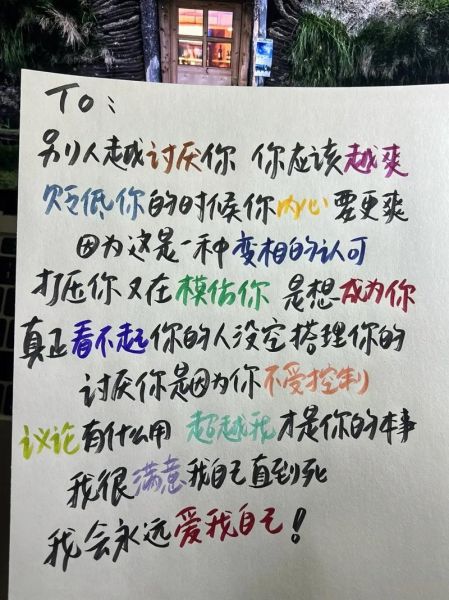 TO：
别人越讨厌你 你应该越爽
贬低你的时候你内心要更爽
因为这是一种变相的认可
打压你又在模仿你 是想成为你
真正看不起你的人没空搭理你的
讨厌你是因为你不受控制
议论有什么用 超越我才是你的本事
我很满意我自己直到死
我会永远爱我自己！